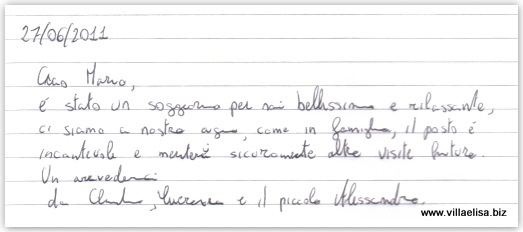 27/06/2011
Ciao Marco,
é stato un soggiorno per noi bellissimo e rilassante,
ci siamo a nostro agio, come in famiglia, il posto é
incantevole e meriterà sicuramente altre visite future.
Un arrivederci
da Claudio, Lucrezia e il piccolo Alessandro.
www.villaelisa.biz